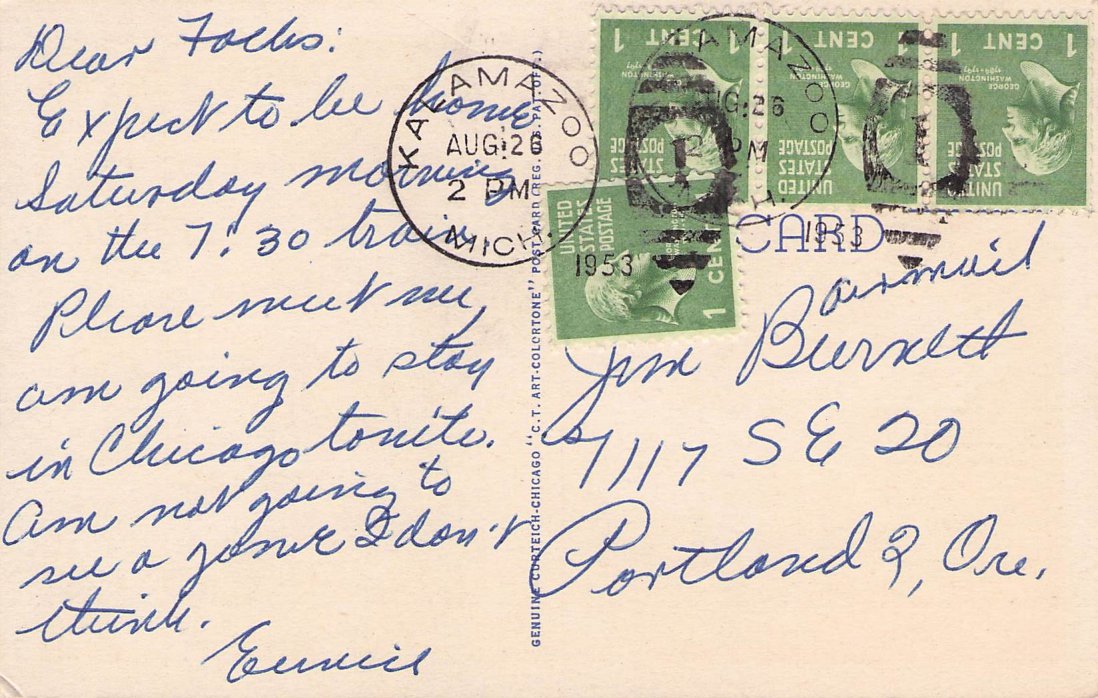 Dear Folks:
Expect to be home
Saturday morning
on the 7:30 train
Please meet me,
am going to stay
in Chicago tonite.
Am not going to
see a game I don't
think.
Eunice
KALAMAZOO
AUG 26
2 PM
MICH.
1953
KALAMAZOO
AUG 26
2 PM
MICH.
1953
1 CENT
GEORGE WASHINGTON
1789-1797
UNITED
STATES
POSTAGE
1 CENT
GEORGE WASHINGTON
1789-1797
UNITED
STATES
POSTAGE
1 CENT
GEORGE WASHINGTON
1789-1797
UNITED
STATES
POSTAGE
UNITED
STATES
POSTAGE
1 CENT
CARD
GENUINE CURTEICH-CHICAGO "C.T. ART-COLORTONE" POST CARD (REG. U.S. PAT. OFF.)
airmail
Jim Burnett
7117 SE 20
Portland 2, Ore.